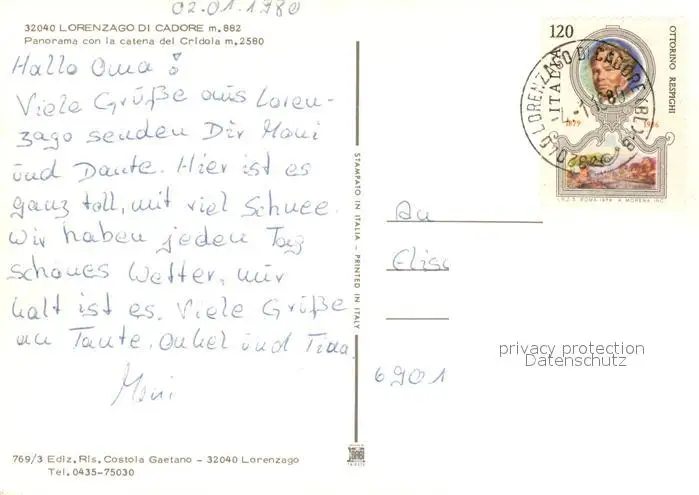 02.01.1980
32040 LORENZAGO DI CADORE m. 882
Panorama con la catena del Cridola m. 2580
Hallo Oma !
Viele Grüße aus Loren-
zago senden Dir Moni
und Dante. Hier ist es
ganz toll, mit viel Schnee.
Wir haben jeden Tag
schönes Wetter, nur
kalt ist es. Viele Grüße
an Tante, Onkel und Tina
Moni
769/3 Ediz. Ris. Costola Gaetano - 32040 Lorenzago
Tel. 0435-75030
STAMPATO IN ITALIA - PRINTED IN ITALY
120
ITALIA
OTTORINO RESPIGHI
1879 1936
I.P.Z.S. ROMA 1979 A. MORENA INC.
LORENZAGO DI CADORE (BL)
An
Elis
6901
privacy protection
Datenschutz